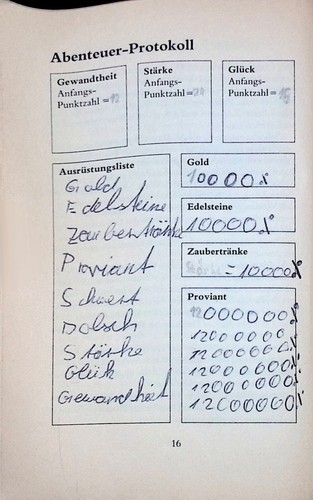 Abenteuer-Protokoll
Gewandtheit
Anfangs-
Punktzahl =
Stärke
Anfangs-
Punktzahl = 20
Glück
Anfangs-
Punktzahl =
Ausrüstungsliste
Gold
Edelsteine
Zaubertränke
Proviant
Schwert
Dolsch
Stärke
Glük
Gewandheit
Gold
10000%
Edelsteine
10000%
Zaubertränke
= 10000%
Proviant
12000000%
12000000
12000000%
12000000%
12000000%
12000000%
16